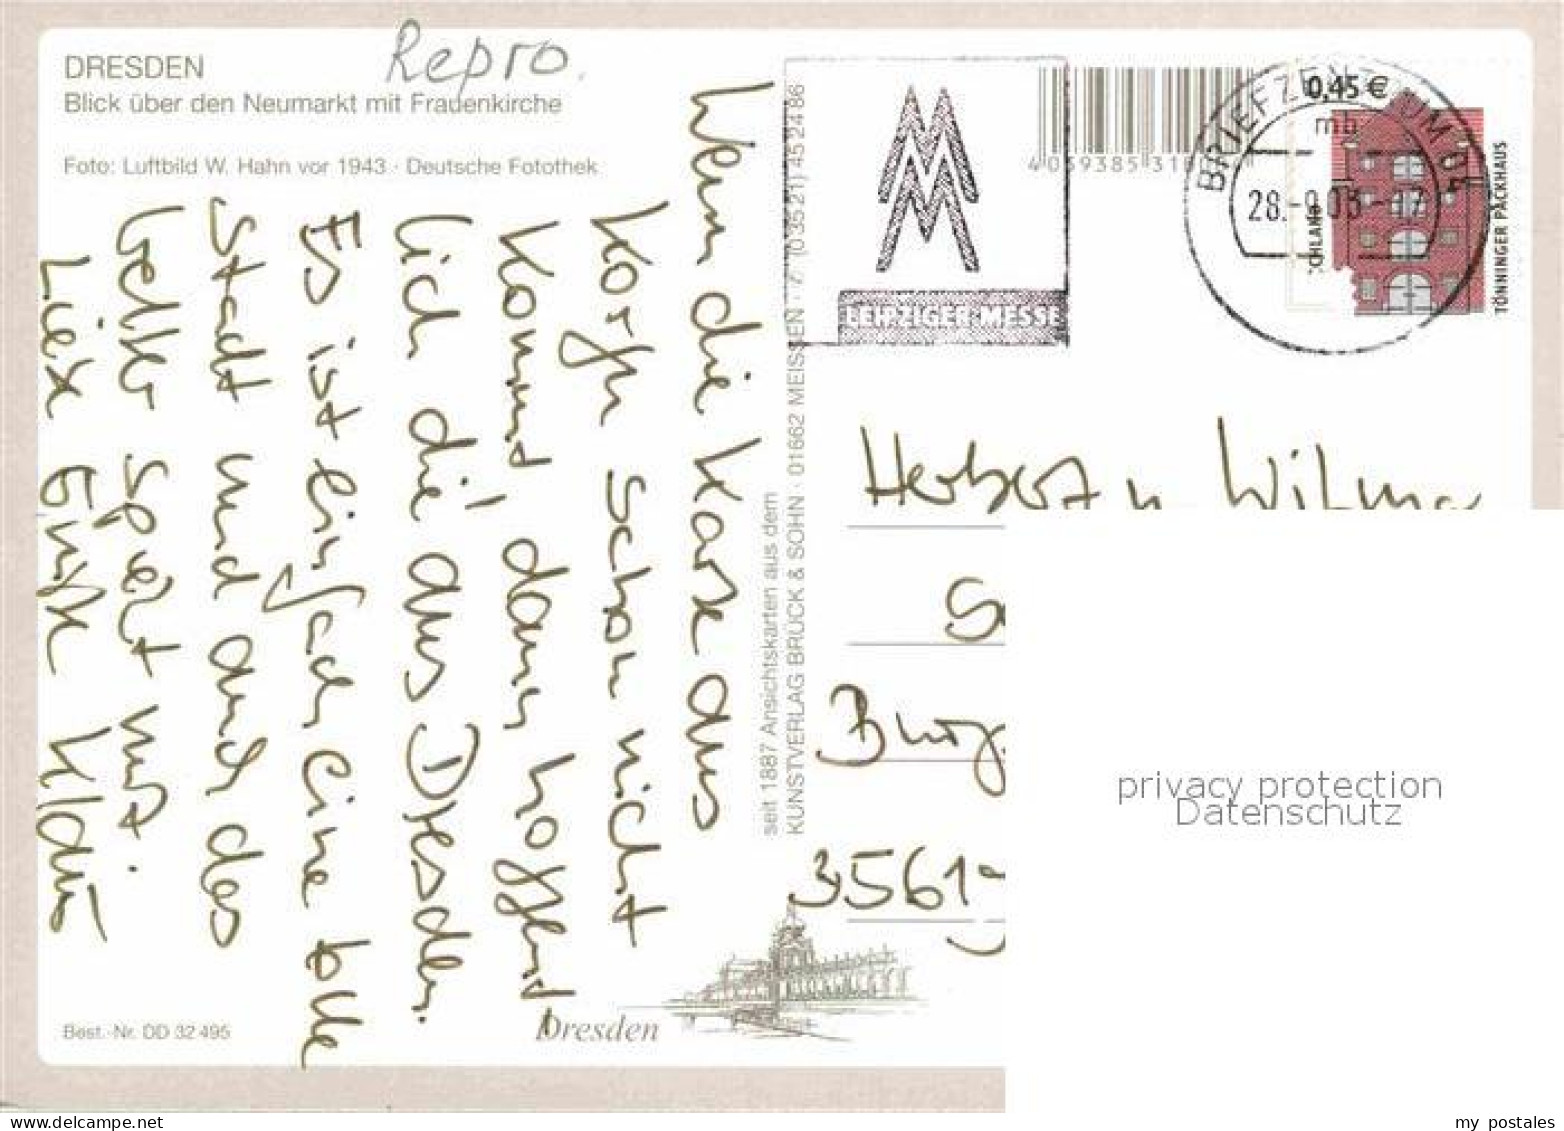 DRESDEN
Blick über den Neumarkt mit Frauenkirche
Repro.
Foto: Luftbild W. Hahn vor 1943 · Deutsche Fotothek
Wenn die Karte aus
Korfu schon nicht
kommt, dann hoffent-
lich die aus Dresden.
Es ist einfach eine tolle
Stadt und auch das
Wetter spielt mit.
Liebe Grüße Klaus
Best.-Nr. DD 32 495
seit 1887 Ansichtskarten aus dem
KUNSTVERLAG BRÜCK & SOHN · 01662 MEISSEN · (0 35 21) 45 24 86
LEIPZIGER MESSE
4 039385 31
BRIEFZENTRUM 04
mb
28.-9.03-17
0,45 €
TÖNNINGER PACKHAUS
Herbert u. Wilma
S
Burg
35619
Dresden
privacy protection
Datenschutz
my postales